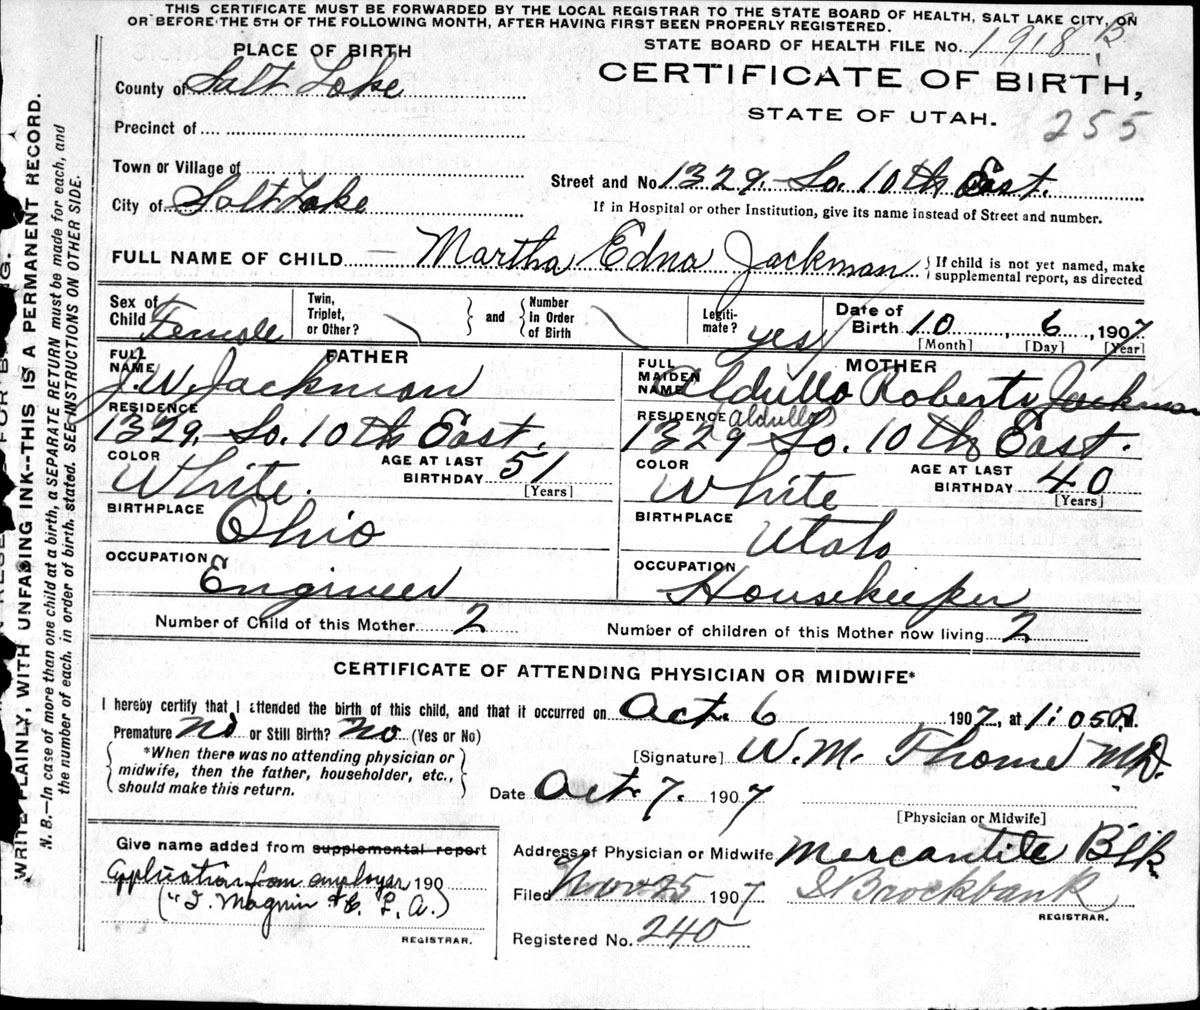 THIS CERTIFICATE MUST BE FORWARDED BY THE LOCAL REGISTRAR TO THE STATE BOARD OF HEALTH, SALT LAKE CITY, ON
OR BEFORE THE 5TH OF THE FOLLOWING MONTH, AFTER HAVING FIRST BEEN PROPERLY REGISTERED.
PLACE OF BIRTH
STATE BOARD OF HEALTH FILE NO. 1918 B
County of Salt Lake
CERTIFICATE OF BIRTH,
STATE OF UTAH.
255
Precinct of
Town or Village of
Street and No. 1329. So. 10th East.
City of Salt Lake
If in Hospital or other Institution, give its name instead of Street and number.
FULL NAME OF CHILD Martha Edna Jackman
{ If child is not yet named, make
supplemental report, as directed
Sex of Child Female
Twin, Triplet, or Other?
and
Number In Order of Birth
Legiti-mate? yes
Date of Birth 10, 6, 1907
[Month] [Day] [Year]
FATHER
FULL NAME J. W. Jackman
RESIDENCE
1329. So. 10th East.
COLOR White.
AGE AT LAST BIRTHDAY 51
[Years]
BIRTHPLACE Ohio
OCCUPATION Engineer
Number of Child of this Mother 2
MOTHER
FULL MAIDEN NAME Aldulla Roberts Jackman
RESIDENCE
1329 So. 10th East.
COLOR White
AGE AT LAST BIRTHDAY 40
[Years]
BIRTHPLACE Utah
OCCUPATION Housekeeper
Number of children of this Mother now living 2
CERTIFICATE OF ATTENDING PHYSICIAN OR MIDWIFE*
I hereby certify that I attended the birth of this child, and that it occurred on Oct. 6 1907, at 1:05
Premature No or Still Birth? No (Yes or No)
*When there was no attending physician or
midwife, then the father, householder, etc.,
should make this return.
[Signature] W. M. Thome MD.
Date Oct. 7. 1907
[Physician or Midwife]
Give name added from supplemental report
Application from employer 190
("I. Magnin & C. L. A.)
REGISTRAR.
Address of Physician or Midwife Mercantile Blk
Filed Nov 25 1907 Brockbank
REGISTRAR.
Registered No. 240
WRITE PLAINLY, WITH UNFADING INK--THIS IS A PERMANENT RECORD.
N. B.—In case of more than one child at a birth, a SEPARATE RETURN must be made for each, and
the number of each, in order of birth, stated. SEE INSTRUCTIONS ON OTHER SIDE.